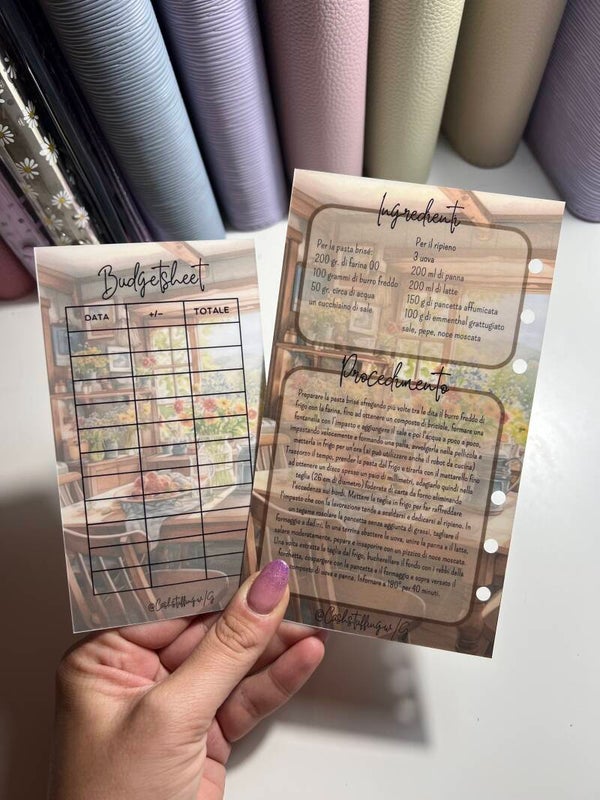 Budgetsheet
DATA
+/-
TOTALE
@Cashstuffingw/G
Ingredienti
Per la pasta brisé:
200 gr. di farina 00
100 grammi di burro freddo
50 gr. circa di acqua
un cucchiaino di sale
Per il ripieno
3 uova
200 ml di panna
200 ml di latte
150 g di pancetta affumicata
100 g di emmenthal grattugiato
sale, pepe, noce moscata
Procedimento
Preparare la pasta brisè sfregando più volte tra le dita il burro freddo di
frigo con la farina, fino ad ottenere un composto di briciole, formare una
fontanella con l'impasto e aggiungere il sale e poi l'acqua a poco a poco,
impastando velocemente e formando una palla, avvolgerla nella pellicola e
metterla in frigo per un ora (si può utilizzare anche il robot da cucina)
Trascorso il tempo, prender la pasta dal frigo e tirarla con il mattarello fino
ad ottenere un disco spesso un paio di millimetri, adagiarlo quindi nella
teglia (26 cm di diametro) foderata di carta da forno eliminando
l'eccedenza sui bordi. Mettere la teglia in frigo per far raffreddare
l'impasto che con la lavorazione tende a scaldarsi e dedicarsi al ripieno. In
un tegame rosolare la pancetta senza aggiunta di grassi, tagliare il
formaggio a dadini. In una terrina sbattere le uova, unire la panna e il latte,
salare moderatamente, pepare e insaporire con un pizzico di noce moscata.
Una volta estratta la teglia dal frigo, bucherellare il fondo con i rebbi della
forchetta, cospargere con la pancetta e il formaggio e sopra versato il
composto di uova e panna. Infornare a 180° per 40 minuti.
@Cashstuffingw/G